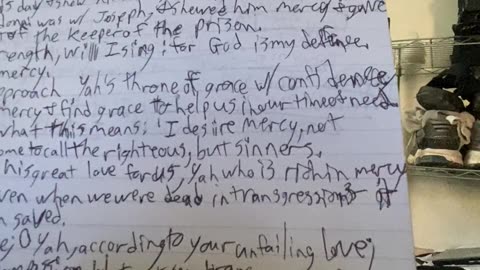 s day & show him
was w/ Joseph, & shewed him mercy & gave
of the keeper of the prison.
rength, will I sing: for God is my defense.
mercy.
proach Yah's throne of grace w/ confidence
mercy & find grace to help us in our time of need
what this means: 'I desire mercy, not
ome to call the righteous, but sinners.
his great love for us, Yah who is rich in mercy
ven when we were dead in transgressions
n saved.
e, O Yah, according to your unfailing love;